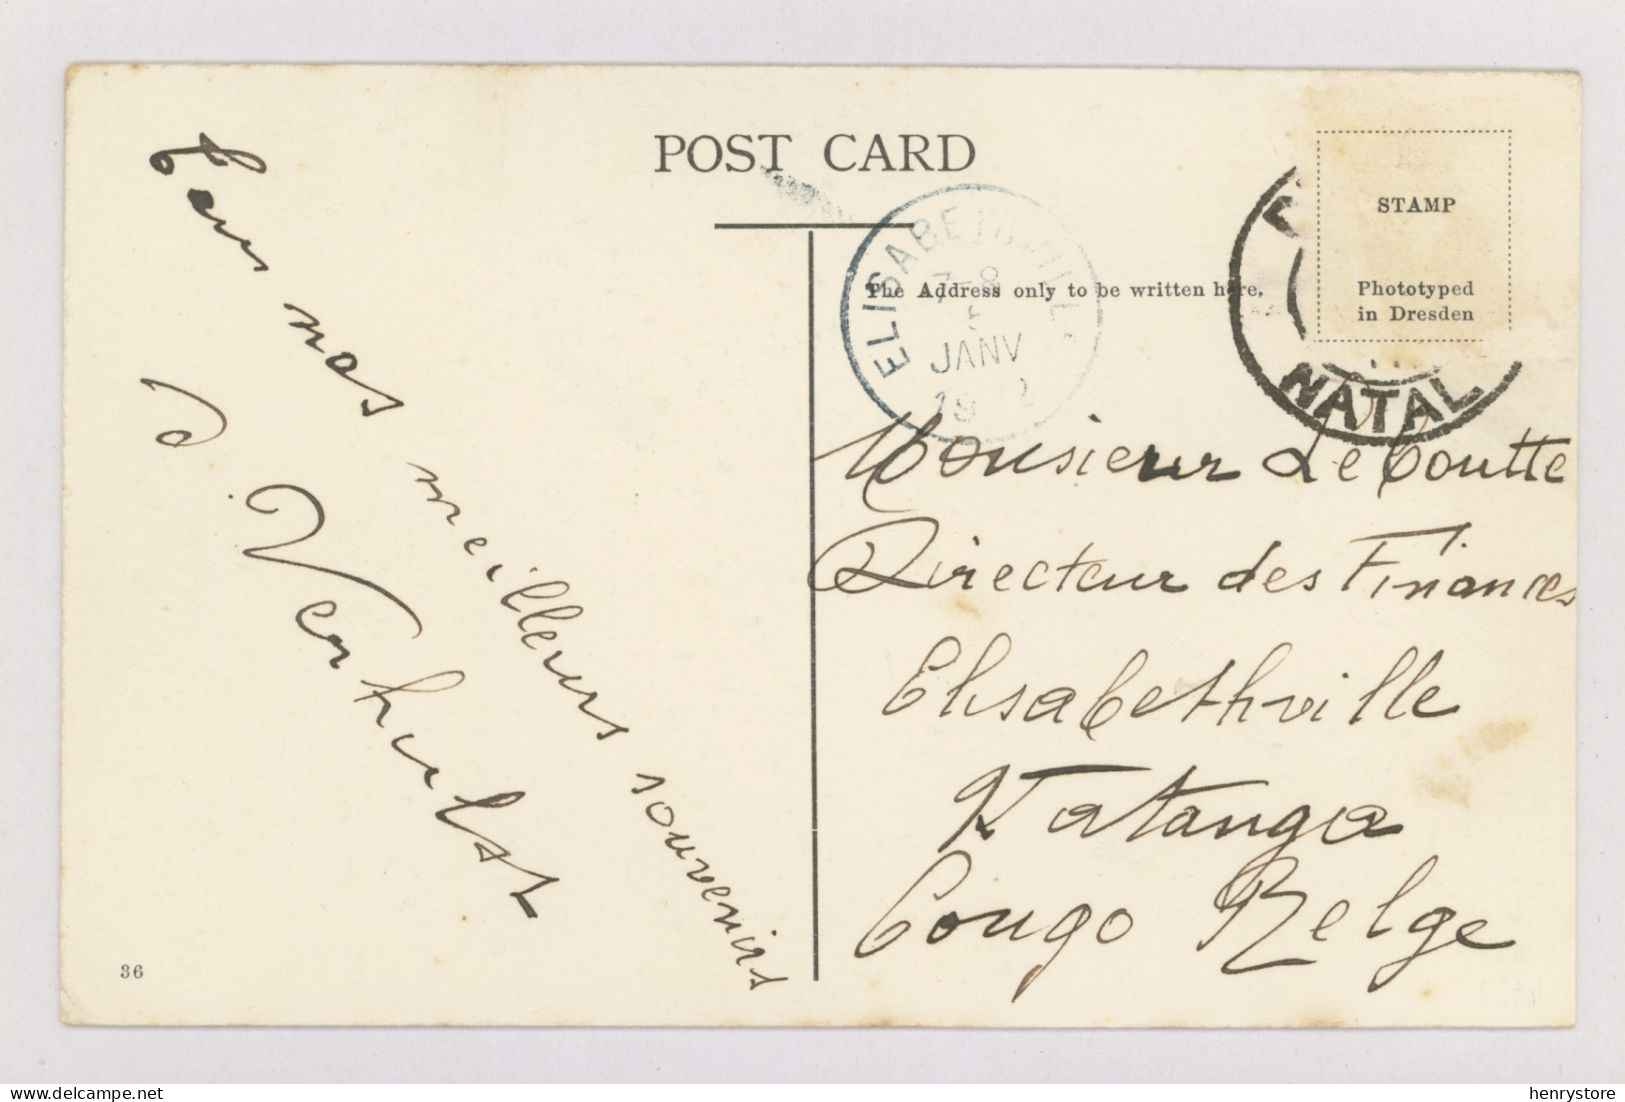 POST CARD
STAMP
The Address only to be written here.
Phototyped
in Dresden
ELISABETHVILLE
7-8
5
JANV
NATAL
Tous nos meilleurs souvenirs
Verhulst
Monsieur LeCoutte
Directeur des Finances
Elisabethville
Katanga
Congo Belge
36
delcampe.net
henrystore